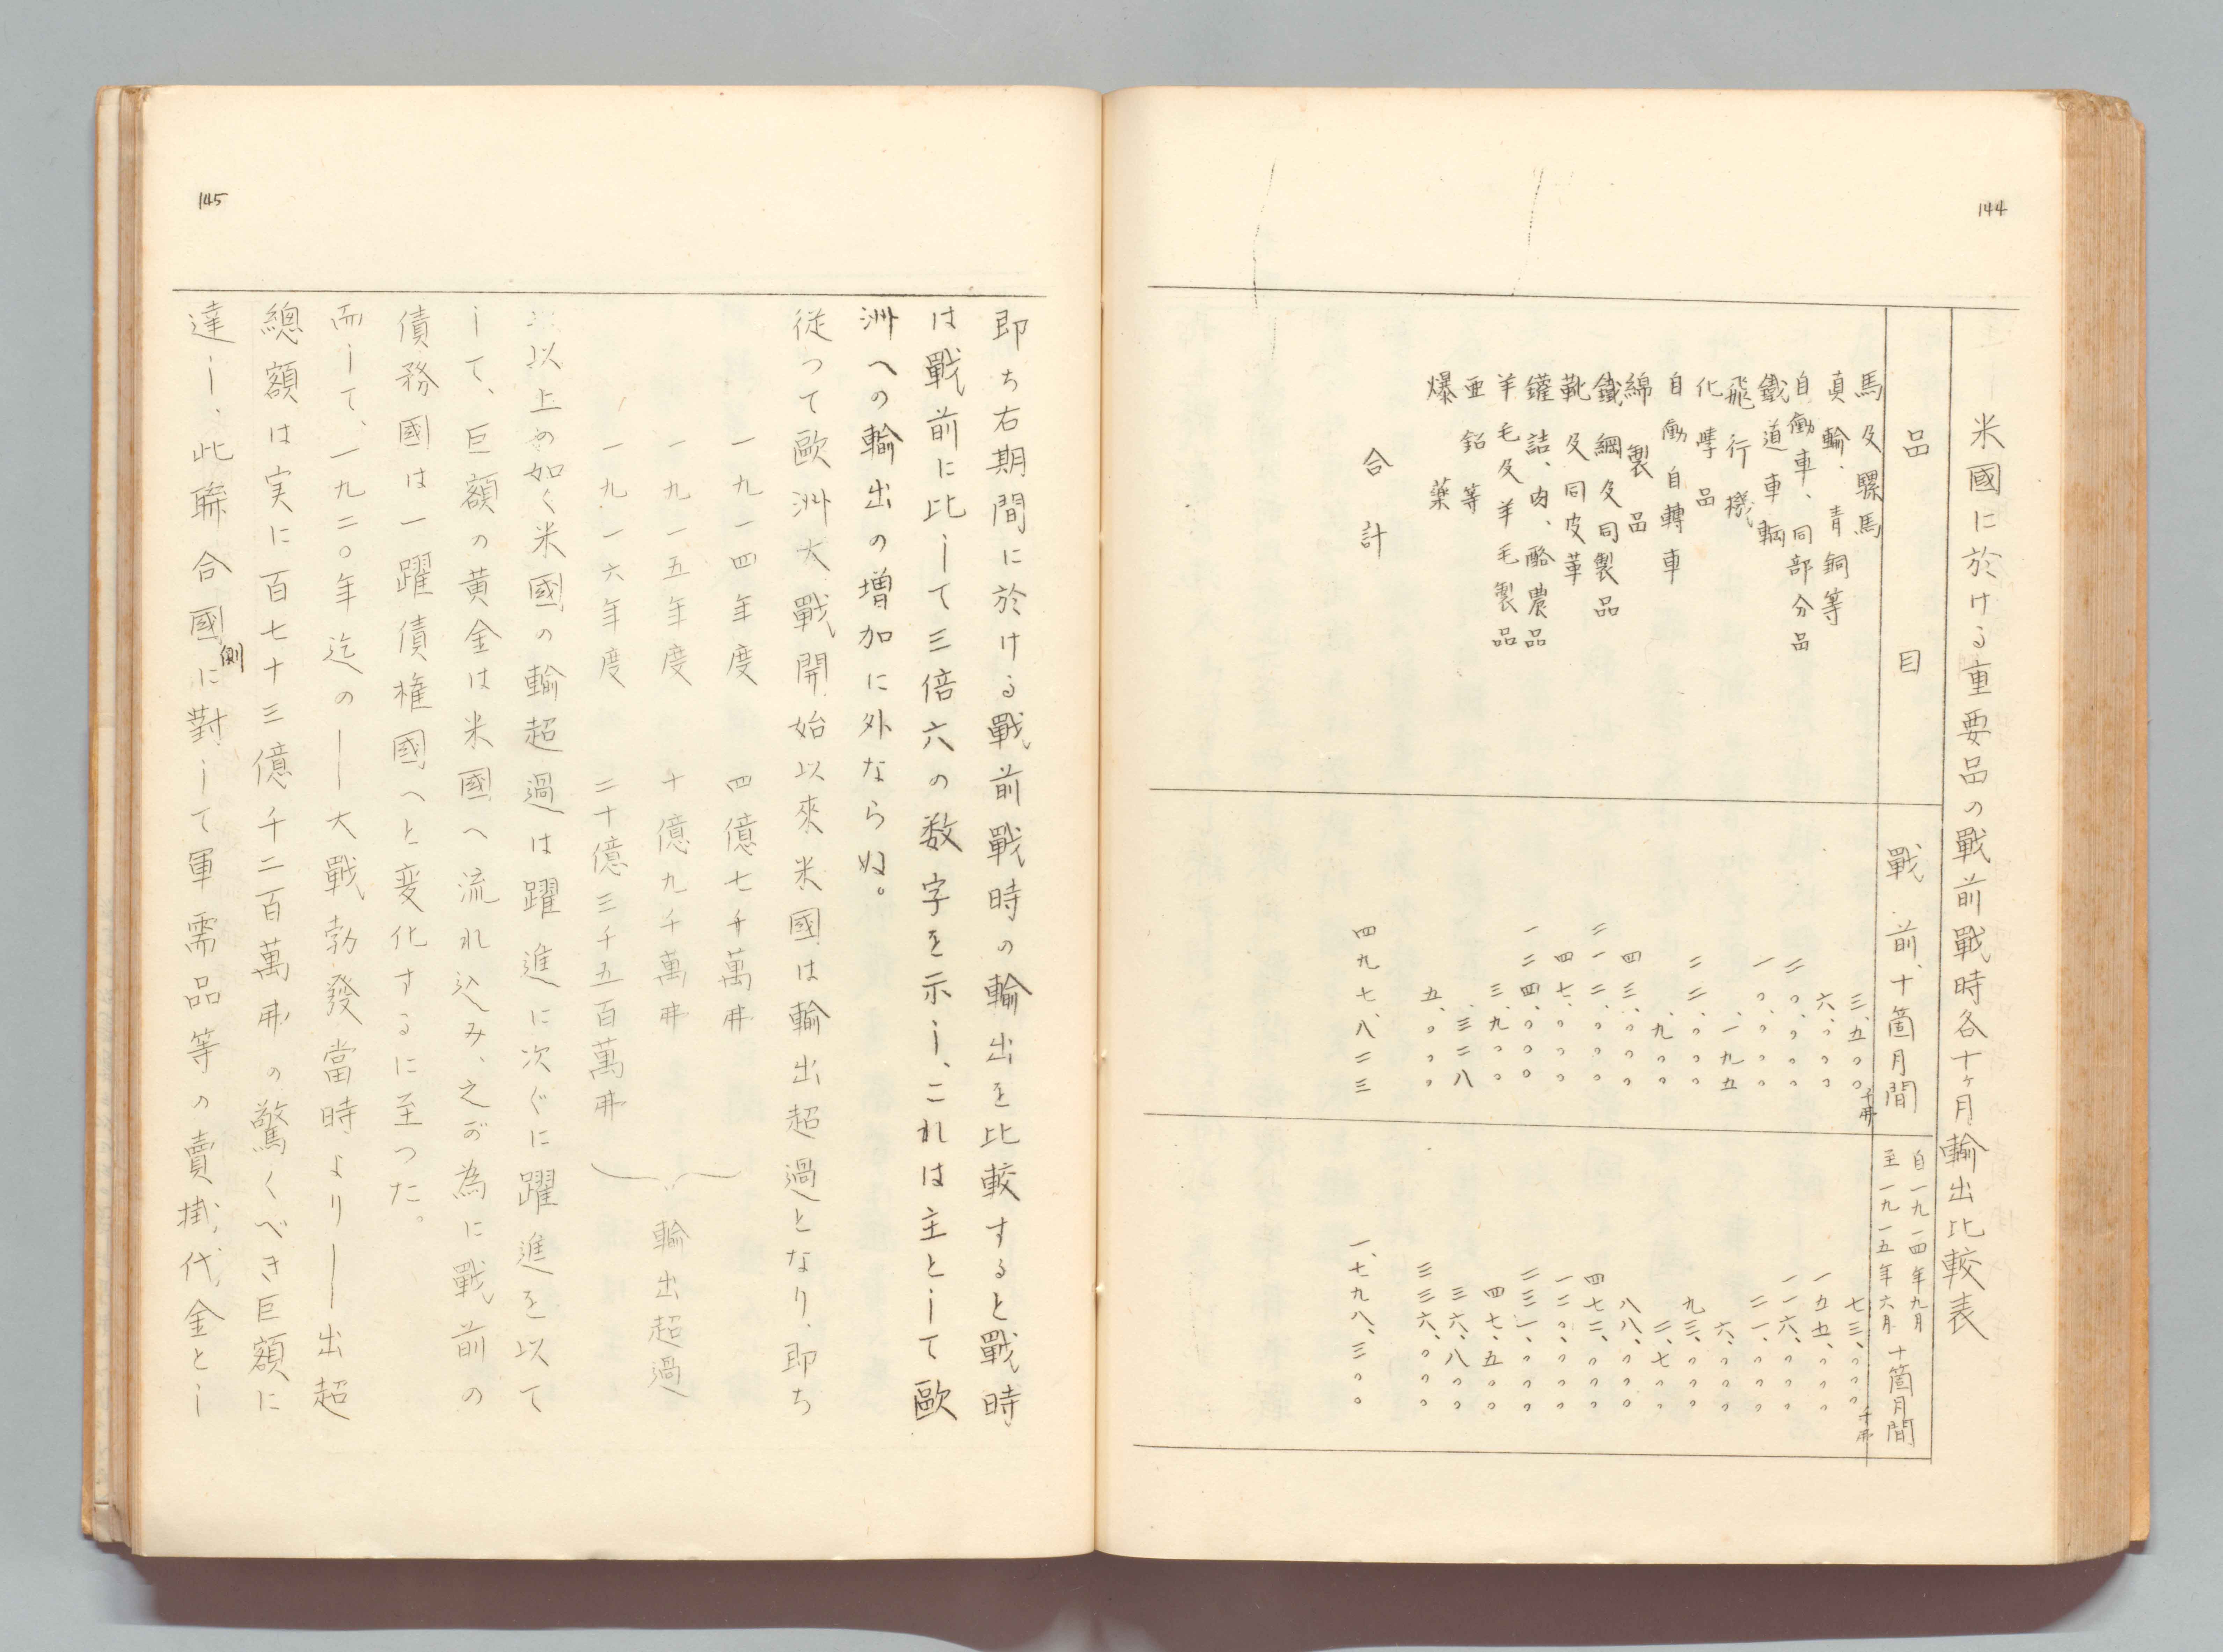 144
米國に於ける重要品の戰前戰時各十ヶ月輸出比較表
品目
戰前、十箇月間
自一九一四年九月
至一九一五年六月
十箇月間
馬及騾馬 三、五〇〇千弗 七三、〇〇〇千弗
真鍮、青銅等 六、〇〇〇 一五五、〇〇〇
自働車、同部分品 二〇、〇〇〇 一一六、〇〇〇
鐵道車輌 一〇、〇〇〇 二一、〇〇〇
飛行機 、一九五 六、〇〇〇
化學品 二二、〇〇〇 九三、〇〇〇
自働自轉車 、九〇〇 二、七〇〇
綿製品 四三、〇〇〇 八八、〇〇〇
鐵鋼及同製品 二一二、〇〇〇 四七二、〇〇〇
靴及同皮革 四七、〇〇〇 一二〇、〇〇〇
鑵詰、肉、酪農品 一二四、〇〇〇 二三一、〇〇〇
羊毛及羊毛製品 三、九〇〇 四七、五〇〇
亜鉛等 、三二八 三六、八〇〇
爆藥 五、〇〇〇 三三六、〇〇〇
合計 四九七、八二三 一、七九八、三〇〇
145
即ち右期間に於ける戰前戰時の輸出を比較すると戰時
は戰前に比して三倍六の数字を示し、これは主として歐
洲への輸出の増加に外ならぬ。
従つて歐洲大戰開始以來米國は輸出超過となり、即ち
一九一四年度 四億七千萬弗
一九一五年度 十億九千萬弗
一九一六年度 二十億三千五百萬弗
輸出超過
以上の如く米國の輸超過は躍進に次ぐに躍進を以て
して、巨額の黄金は米國へ流れ込み、之が為に戰前の
債務國は一躍債権國へと変化するに至つた。
而して、一九二〇年迄の――大戰勃發當時より――出超
總額は実に百七十三億千二百萬弗の驚くべき巨額に
達し、此聯合國側に對して軍需品等の賣掛代金とし